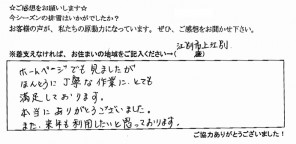 ☆ご感想をお願いします☆
今シーズンの排雪はいかがでしたか？
お客様の声が、私たちの原動力になっています。ぜひ、ご感想をお聞かせ下さい。
※差支えなければ、お住まいの地域をご記入ください→(江別市上江別)
ホームページでも見ましたが
ほんとうに丁寧な作業に、とても
満足しております。
本当にありがとうございました。
また、来年も利用したいと思っております。
ご協力ありがとうございました！